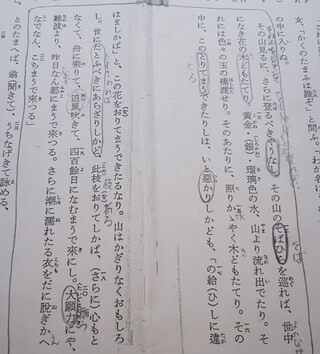 女、『わがなはうかんるり』と
の中に入りぬ。
その山見るに、さらに登るべきやうなし。その山のそばひらを巡れば、世中
になき花の木どもたてり。黄金・銀・瑠璃色の水、山より流れ出でたり。そ
れには色々の玉の橋渡せり。そのあたりに、照りかゞやく木どもたてり。その
中に、このとりてまうできたりしは、いと惡かりしかども、『の給(ひ)しに違
はましかば』と、この花をおりてまうできたるなり。山はかぎりなくおもしろ
し。世にたとふべきにあらざりしかど、此枝をおりてしかば、(さらに)心もと
なくて、舟に乘りて、追風吹きて、四百餘日になむまうで來にし。大願力にや、
難波より、昨日なん都にまうで來つる。さらに潮に濡れたる衣をだに脱ぎかへ
なでなん、こちまうで來つる」
とのたまへば、翁聞きて、うちなげきて詠める、